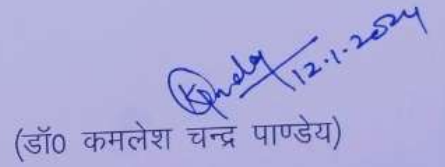 12.1.2024
(डॉ0 कमलेश चन्द्र पाण्डेय)